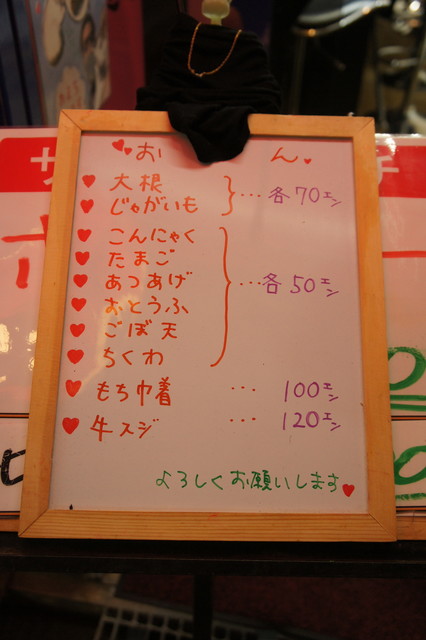 お ん
大根
じゃがいも
…各70エン
こんにゃく
たまご
あつあげ
おとうふ
ごぼ天
ちくわ
…各50エン
もち巾着 … 100エン
牛スジ … 120エン
よろしくお願いします